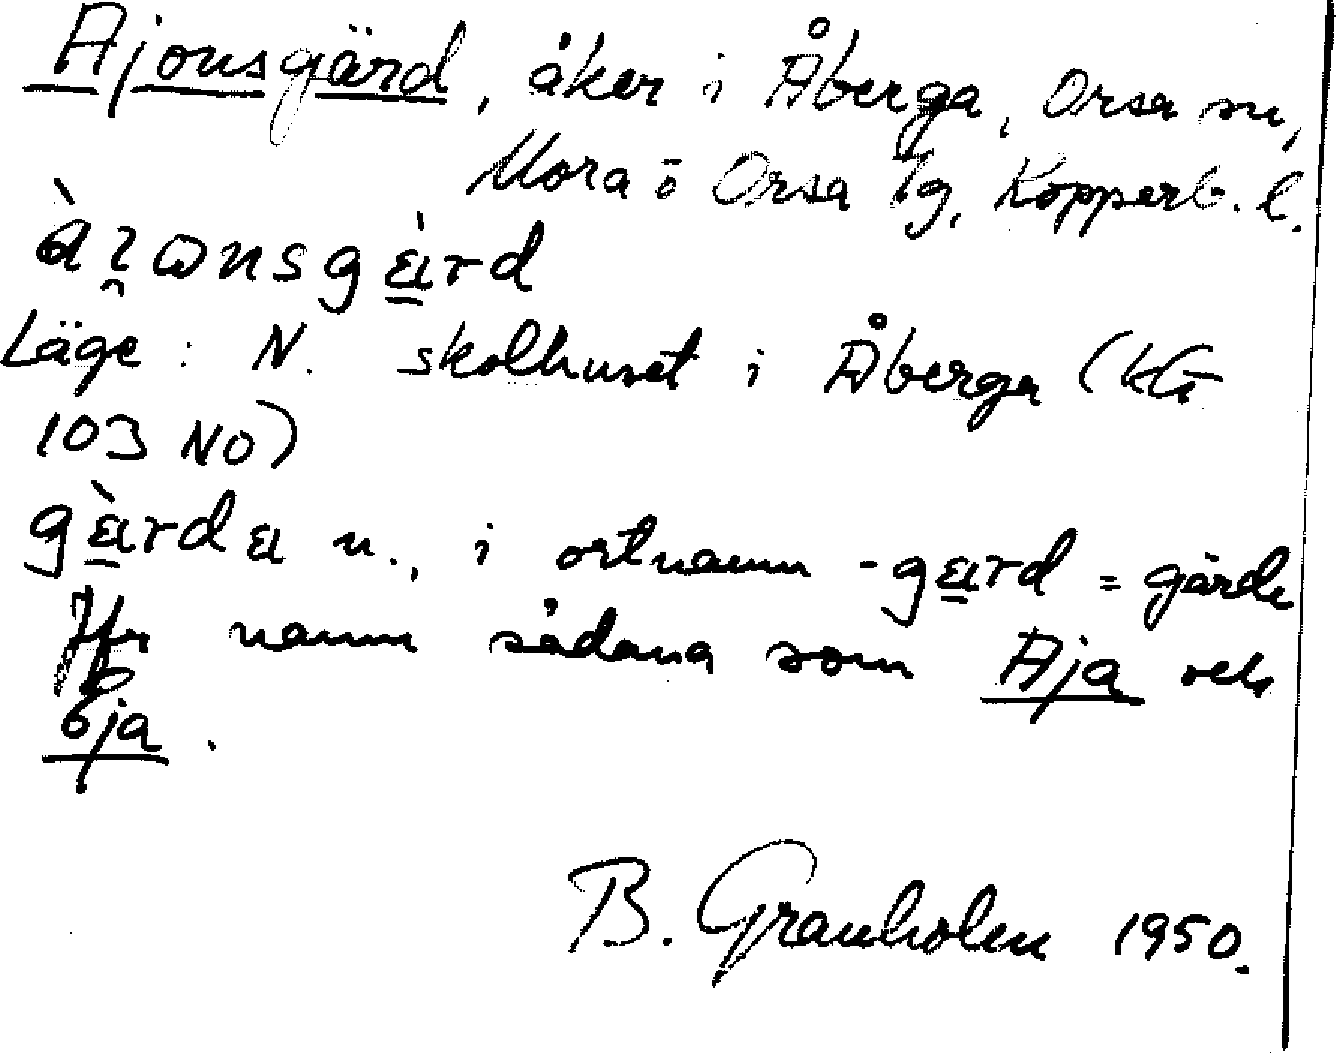 Ajonsgärd, åker i Åberga, Orsa sn,
Mora o Orsa tg, Kopparb. l.
àı̯ωnsgàrd
Läge: N. skolhuset i Åberga (kbl
103 NO)
gàrda n., i ortnamn -gard = gärde
Jfr namn sådana som Aja och
Oja.
B. Granholm 1950.